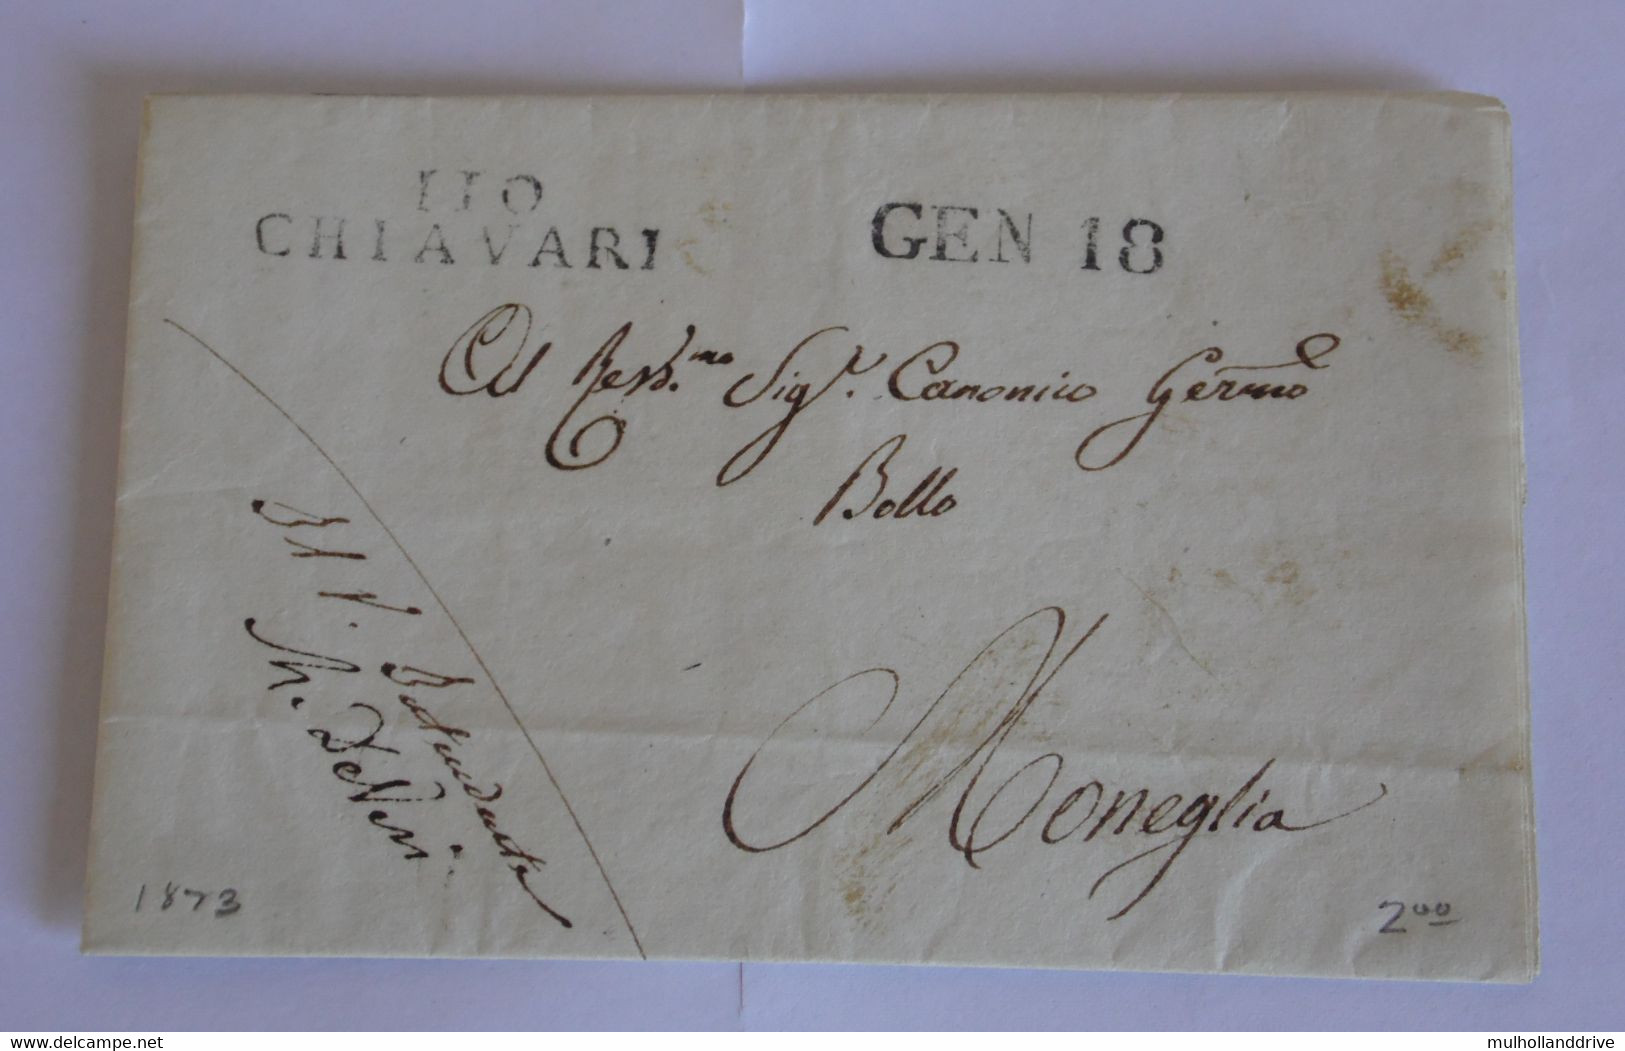 110
CHIAVARI
GEN 18
Al Revd.mo Sigr. Canonico Germo
Bollo
Moneglia
Il V.
De Neri
1873
200
delcampe.net
mulhollanddrive